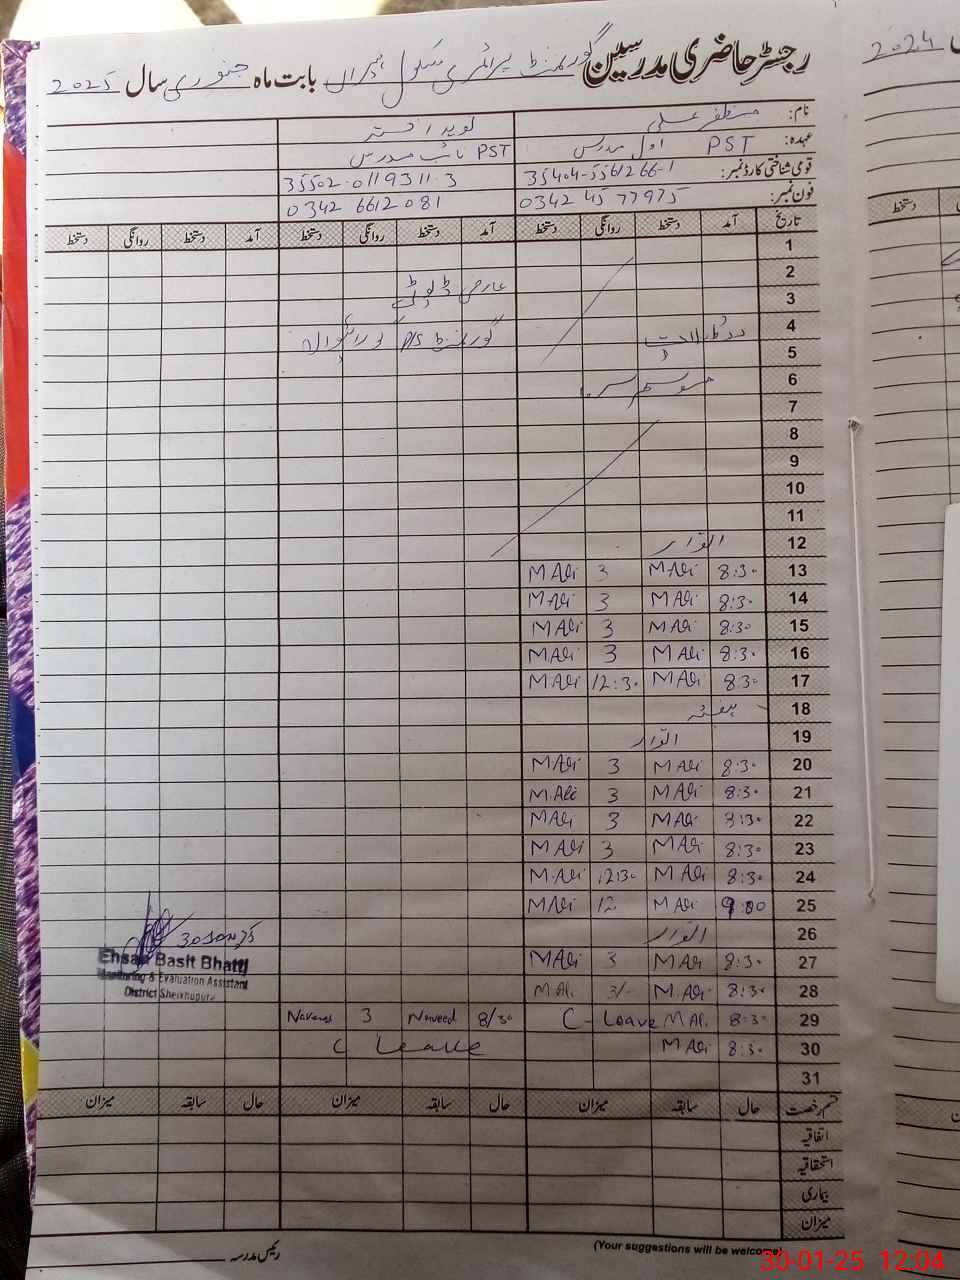 رجسٹر حاضری مدرسین گورنمنٹ پرائمری سکول بابت ماہ جنوری سال 2025
2024
نام: مظفر علی نوید اختر
عہدہ: PST اول مدرس PST نائب مدرس
قومی شناختی کارڈ نمبر: 35404-5561266-1 35502-0119311-3
فون نمبر: 0342 4577975 0342 6612081
تاریخ آمد دستخط روانگی دستخط آمد دستخط روانگی دستخط آمد دستخط روانگی دستخط
1
2
3 عارضی ڈیوٹی
4 گورنمنٹ P/S
5
6 موسم سرما
7
8
9
10
11
12 اتوار
13 8:30 M Ali 3 M Ali
14 8:30 M Ali 3 M Ali
15 8:30 M Ali 3 M Ali
16 8:30 M Ali 3 M Ali
17 8:30 M Ali 12:30 M Ali
18 ہفتہ
19 اتوار
20 8:30 M Ali 3 M Ali
21 8:30 M Ali 3 M.Ali
22 8:30 M Ali 3 M Ali
23 8:30 M Ali 3 M Ali
24 8:30 M Ali 12:30 M.Ali
25 9:00 M Ali 12 M Ali
26 اتوار
27 8:30 M Ali 3 M Ali
28 8:30 M.Ali 3/- M.Al.
29 8:30 M Al. C-Leave 8/30 Naveed 3 Naveed
30 8:30 M Ali C Leave
31
Ehsan Basit Bhatti
Monitoring & Evaluation Assistant
District Sheikhupura
قسم رخصت حال سابقہ میزان حال سابقہ میزان حال سابقہ میزان
اتفاقیہ
استحقاقیہ
بیماری
میزان
رئیس مدرسہ
(Your suggestions will be welcome)
30-01-25 12:04